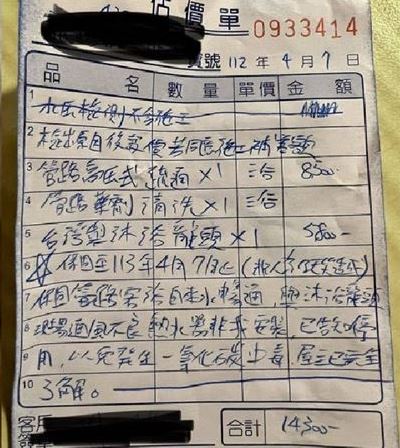 估價單 0933414
號 112年4月7日
品名 數量 單價 金額
1 水压檢測不含施工
2 檢出原因後報價
3 管路高压式疏通×1 三合 8500-
4 管路藥劑清洗×1 三合
5 台灣製沐浴龍頭×1 5800-
6 保固至113年4月7日止
7 保固管路實為自來水暢通,與沐浴龍頭
8 現場通風不良熱水器非我安裝,已告知停
9 用,以免發生一氧化碳中毒,屋主已完全
10 了解。
合計 14300-